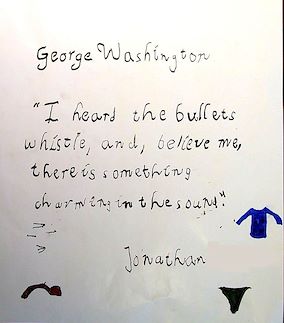 George Washington
"I heard the bullets
whistle, and, believe me,
there is something
charming in the sound".
Jonathan